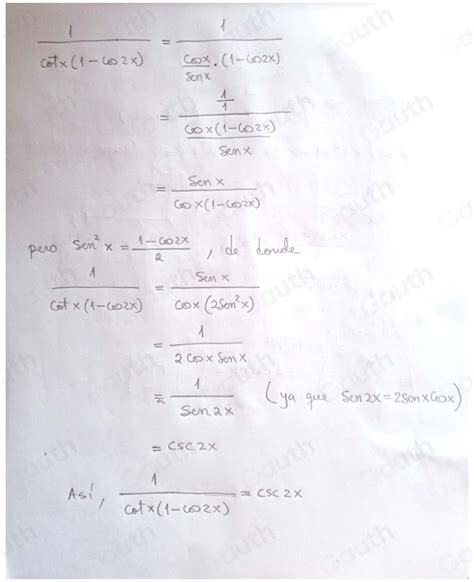 1 / cot x (1 - cos 2x) = 1 / (cos x / sen x · (1 - cos 2x))
= (1/1) / (cos x (1 - cos 2x) / sen x)
= sen x / cos x (1 - cos 2x)
pero sen² x = (1 - cos 2x) / 2 , de donde
1 / cot x (1 - cos 2x) = sen x / cos x (2 sen² x)
= 1 / 2 cos x sen x
= 1 / sen 2x (ya que sen 2x = 2 sen x cos x)
= csc 2x
Así, 1 / cot x (1 - cos 2x) = csc 2x
Gauth